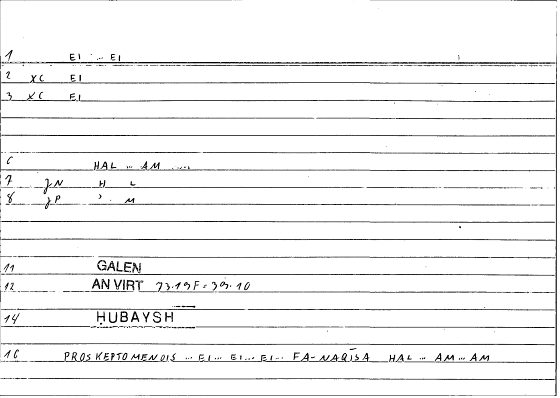 1 EI ... EI
2 XC EI
3 XC EI
6 HAL ... AM ....
7 JN H L
8 JP ʾ M
11 GALEN
12 AN VIRT 73.19F = 39.10
14 ḤUBAYSH
16 PROSKEPTOMENOIS ... EI ... EI ... EI ... FA-NAQĪSA HAL ... AM ... AM